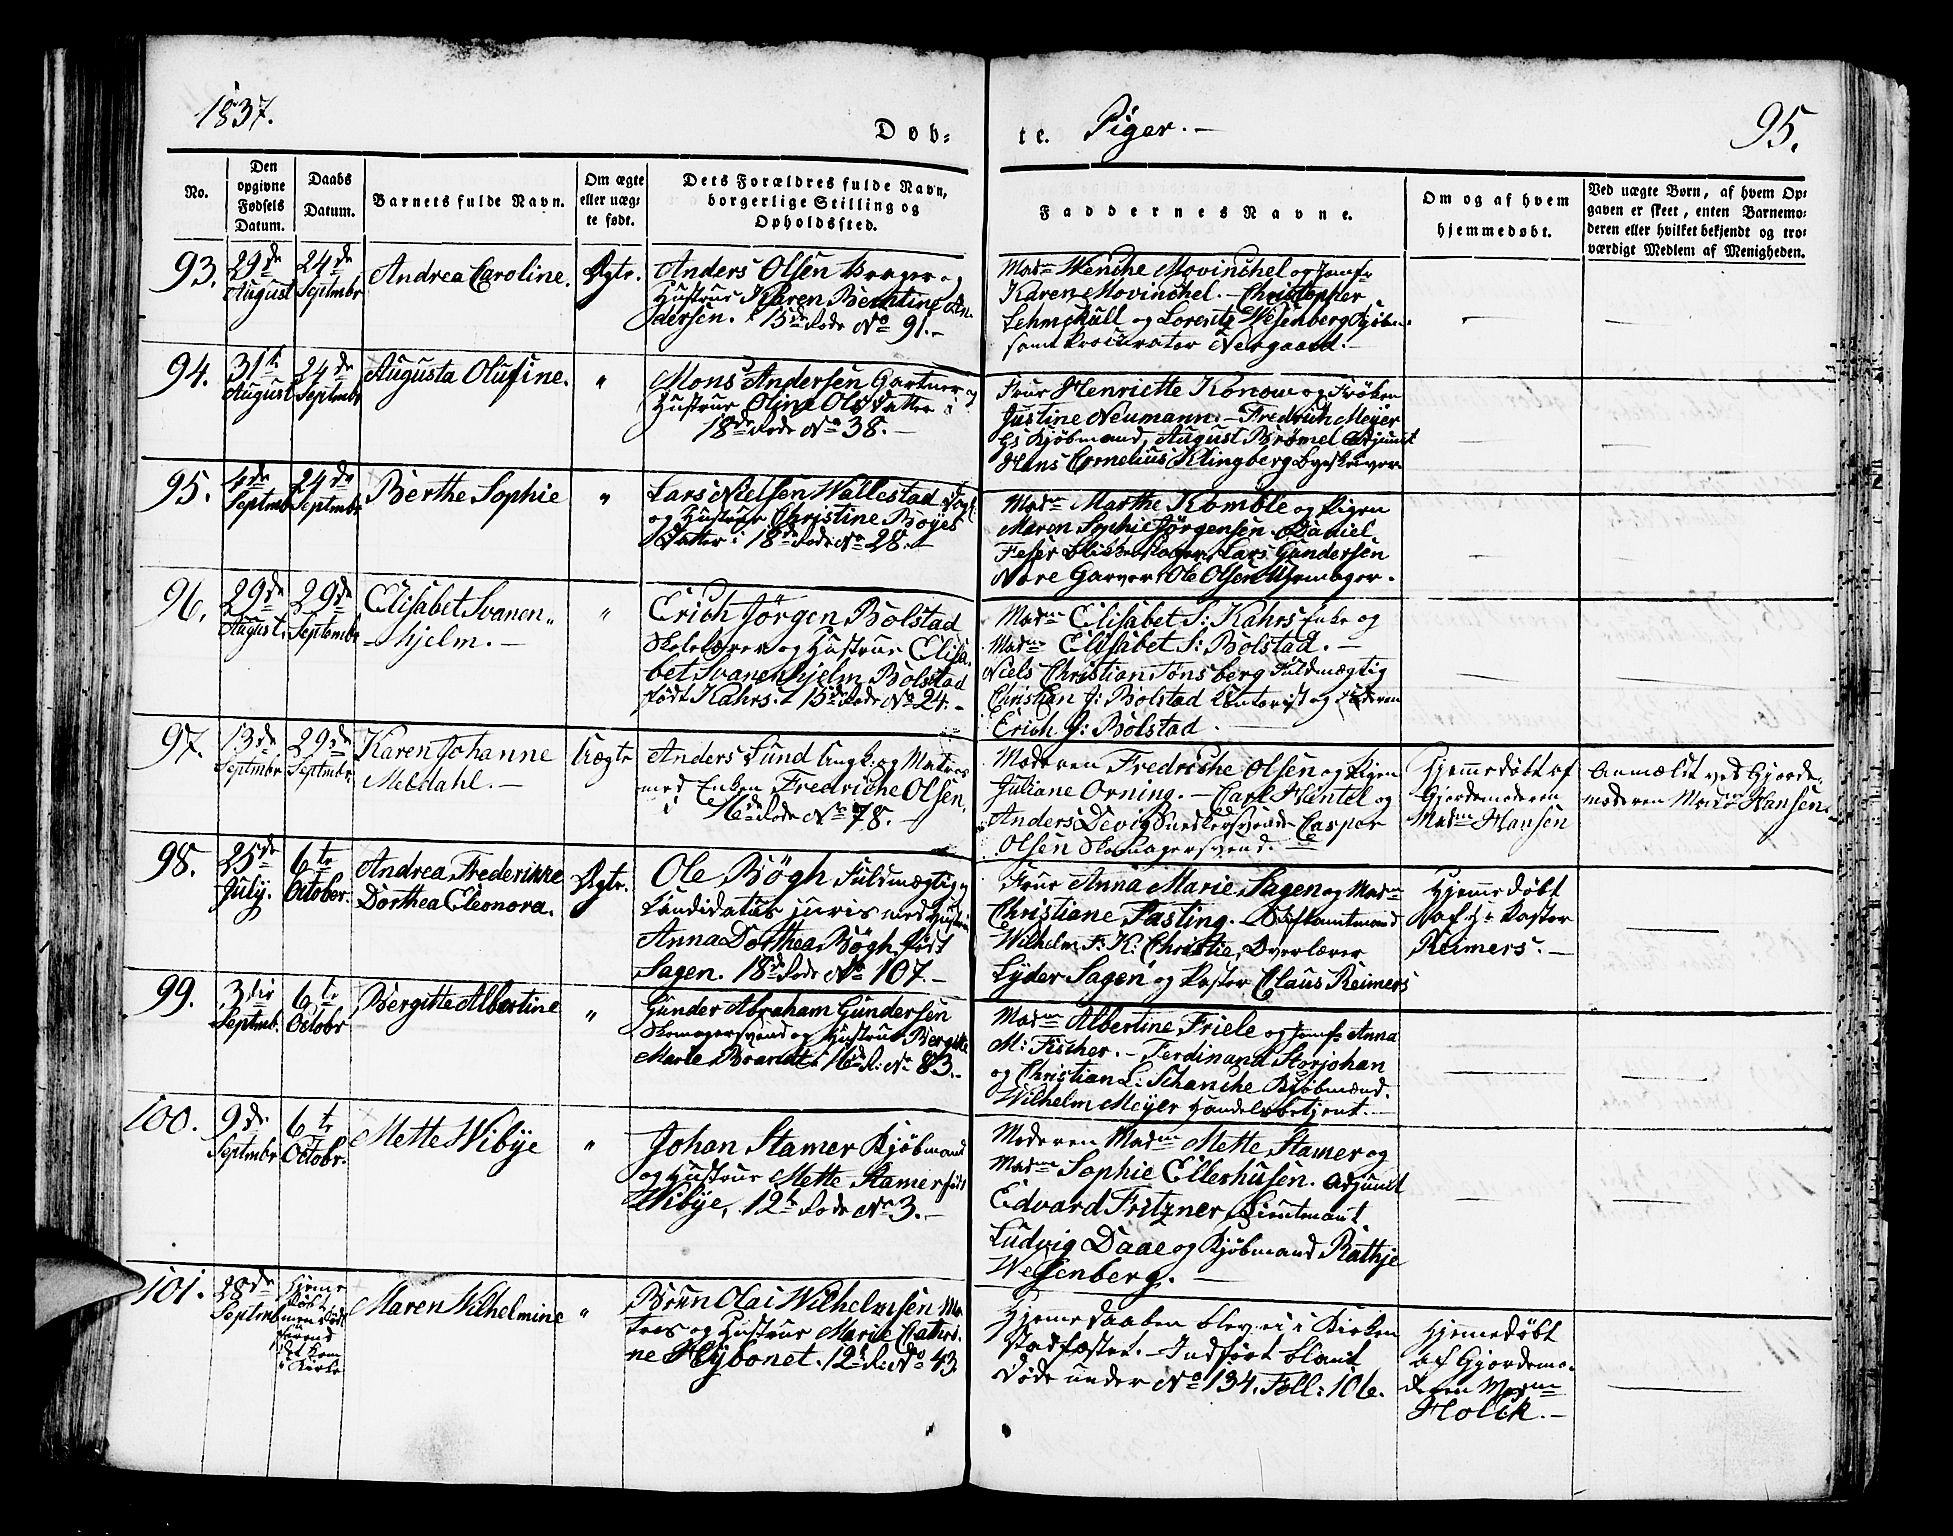 1837.
Døb-
te. Piger.-
95.
No.
Den
opgivne
Fødsels
Datum.
Daabs
Datum.
Barnets fulde Navn.
Om ægte
eller uæg-
te født.
Dets Forældres fulde Navn,
borgerlige Stilling og
Opholdssted.
Faddernes Navne.
Om og af hvem
hjemmedøbt.
Ved uægte Børn, af hvem Op-
gaven er skeet, enten Barnemo-
deren eller hvilket bekjendt og tro-
værdigt Medlem af Menigheden.
93.
29de
August
24de
Septmbr
Andrea Caroline.
Ægte.
Anders Olsen Brager og
Hustrue Karen Berntine An
dersen. i 15de Rode No 91.-
Madm Wenche Movinchel og Jomf:
Karen Movinchel. - Christopher
Lehmkull og Lorentz Wesenberg Kjøbm:
samt Procurator Nergaard.-
94.
31te
August
24de
Septmbr
Augusta Olufine.
"
Mons Andersen Gartner og
Hustrue Oline Olsdatter i
18de Rode No 38.-
Frue Henriette Konow og Frøken
Justine Neumann. - Fredrich Meyer
Kjøbmand, August Brømel Adjunct
Hans Cornelius Klingberg Byeskriver
95.
4de
Septmb
24de
Septmbr
Berthe Sophie
"
Lars Nielsen Wallestad
og Hustrue Christine Boyes
Datter i 18de Rode No 28.-
Madm Marthe Komble og Pigen
Maren Sophie Jørgensen. Daniel
Feser Blikkenslager, Lars Gundersen
Nore Garver, Ole Olsen Uhrmager.
96.
29de
August.
29de
Septembr
Elisabet Svanen-
-hjelm.-
"
Erich Jörgen Bolstad
Skolelærer og Hustrue Elisa-
bet Svanenhjelm Bolstad
født Kahrs. i 15de Rode No 24.-
Madm Elisabet S: Kahrs Enke og
Madm Elisabet S: Bolstad.-
Niels Christian Tønsberg Fuldmægtig
Christian J: Bolstad Contorist og Faderen
Erich J: Bolstad.
97.
13de
Septmbr
29de
Septmbr
Karen Johanne
Meldahl.-
Uægte
Anders Lund Ungk: og Matros
med Enken Fredriche Olsen,
i 16de Rode No 78.-
Moderen Fredriche Olsen og Pigen
Juliane Orning. - Carl Hentel og
Anders Devig Snedkersvende Casper
Olsen Skomagersvend.
Hjemmedøbt af
Gjordemoderen
Madm Hansen
Anmældt ved Gjorde-
moderen Madm Hansen.
98.
25de
July.
6te
October.
Andrea Frederikke
Dorthea Eleonora.
Ægte.
Ole Bögh Fuldmægtig
Candidatus juris med Hustrue
Anna Dorthea Bögh født
Sagen. 18de Rode No 107.-
Frue Anna Marie Sagen og Madm
Christiane Fasting. - Stiftamtmand
Wilhelm F: K: Christie, Overlærer
Lyder Sagen og Pastor Claus Reimers
Hjemmedøbt
af Hr Pastor
Reimers.-
99.
3die
Septmb.
6te
Octobr
Bergitte Albertine
"
Gunder Abraham Gundersen
Skomagersvend og Hustrue Bergitte
Marie Brandt i 16de R: No 83.-
Madm Albertine Friele og Jomf: Anna
M: Fischer. - Ferdinand Storjohan
og Christian L: Schanche Kjøbmænd.
Wilhelm Meyer Handelsbetjent.-
100.
9de
Septmbr
6te
Octobr.
Mette Wibÿe
"
Johan Stamer Kjøbmand
og Hustrue Mette Stamer født
Wibye, 12te Rode No 3.-
Moderen Madm Mette Stamer og
Madm Sophie Ellerhusen. Adjunct
Edvard Fritzner, Lieutenant
Ludvig Daae og Kjøbmand Rathje
Wesenberg.-
101.
28de
Septmb
Hjemme
døbt
men død
førend
det kom
i Kirke
Maren Wilhelmine
"
Brun Olai Wilhelmsen Ma-
tros og Hustrue Marie Cathri-
ne Heybonet. 12te R: No 43.
Hjemmedaaben blev ei i Kirken
Stadfæstet. - Indført blandt
Døde under No 134. Foll: 106.
Hjemmedøbt
af Gjordemo-
deren Madm
Holck.-